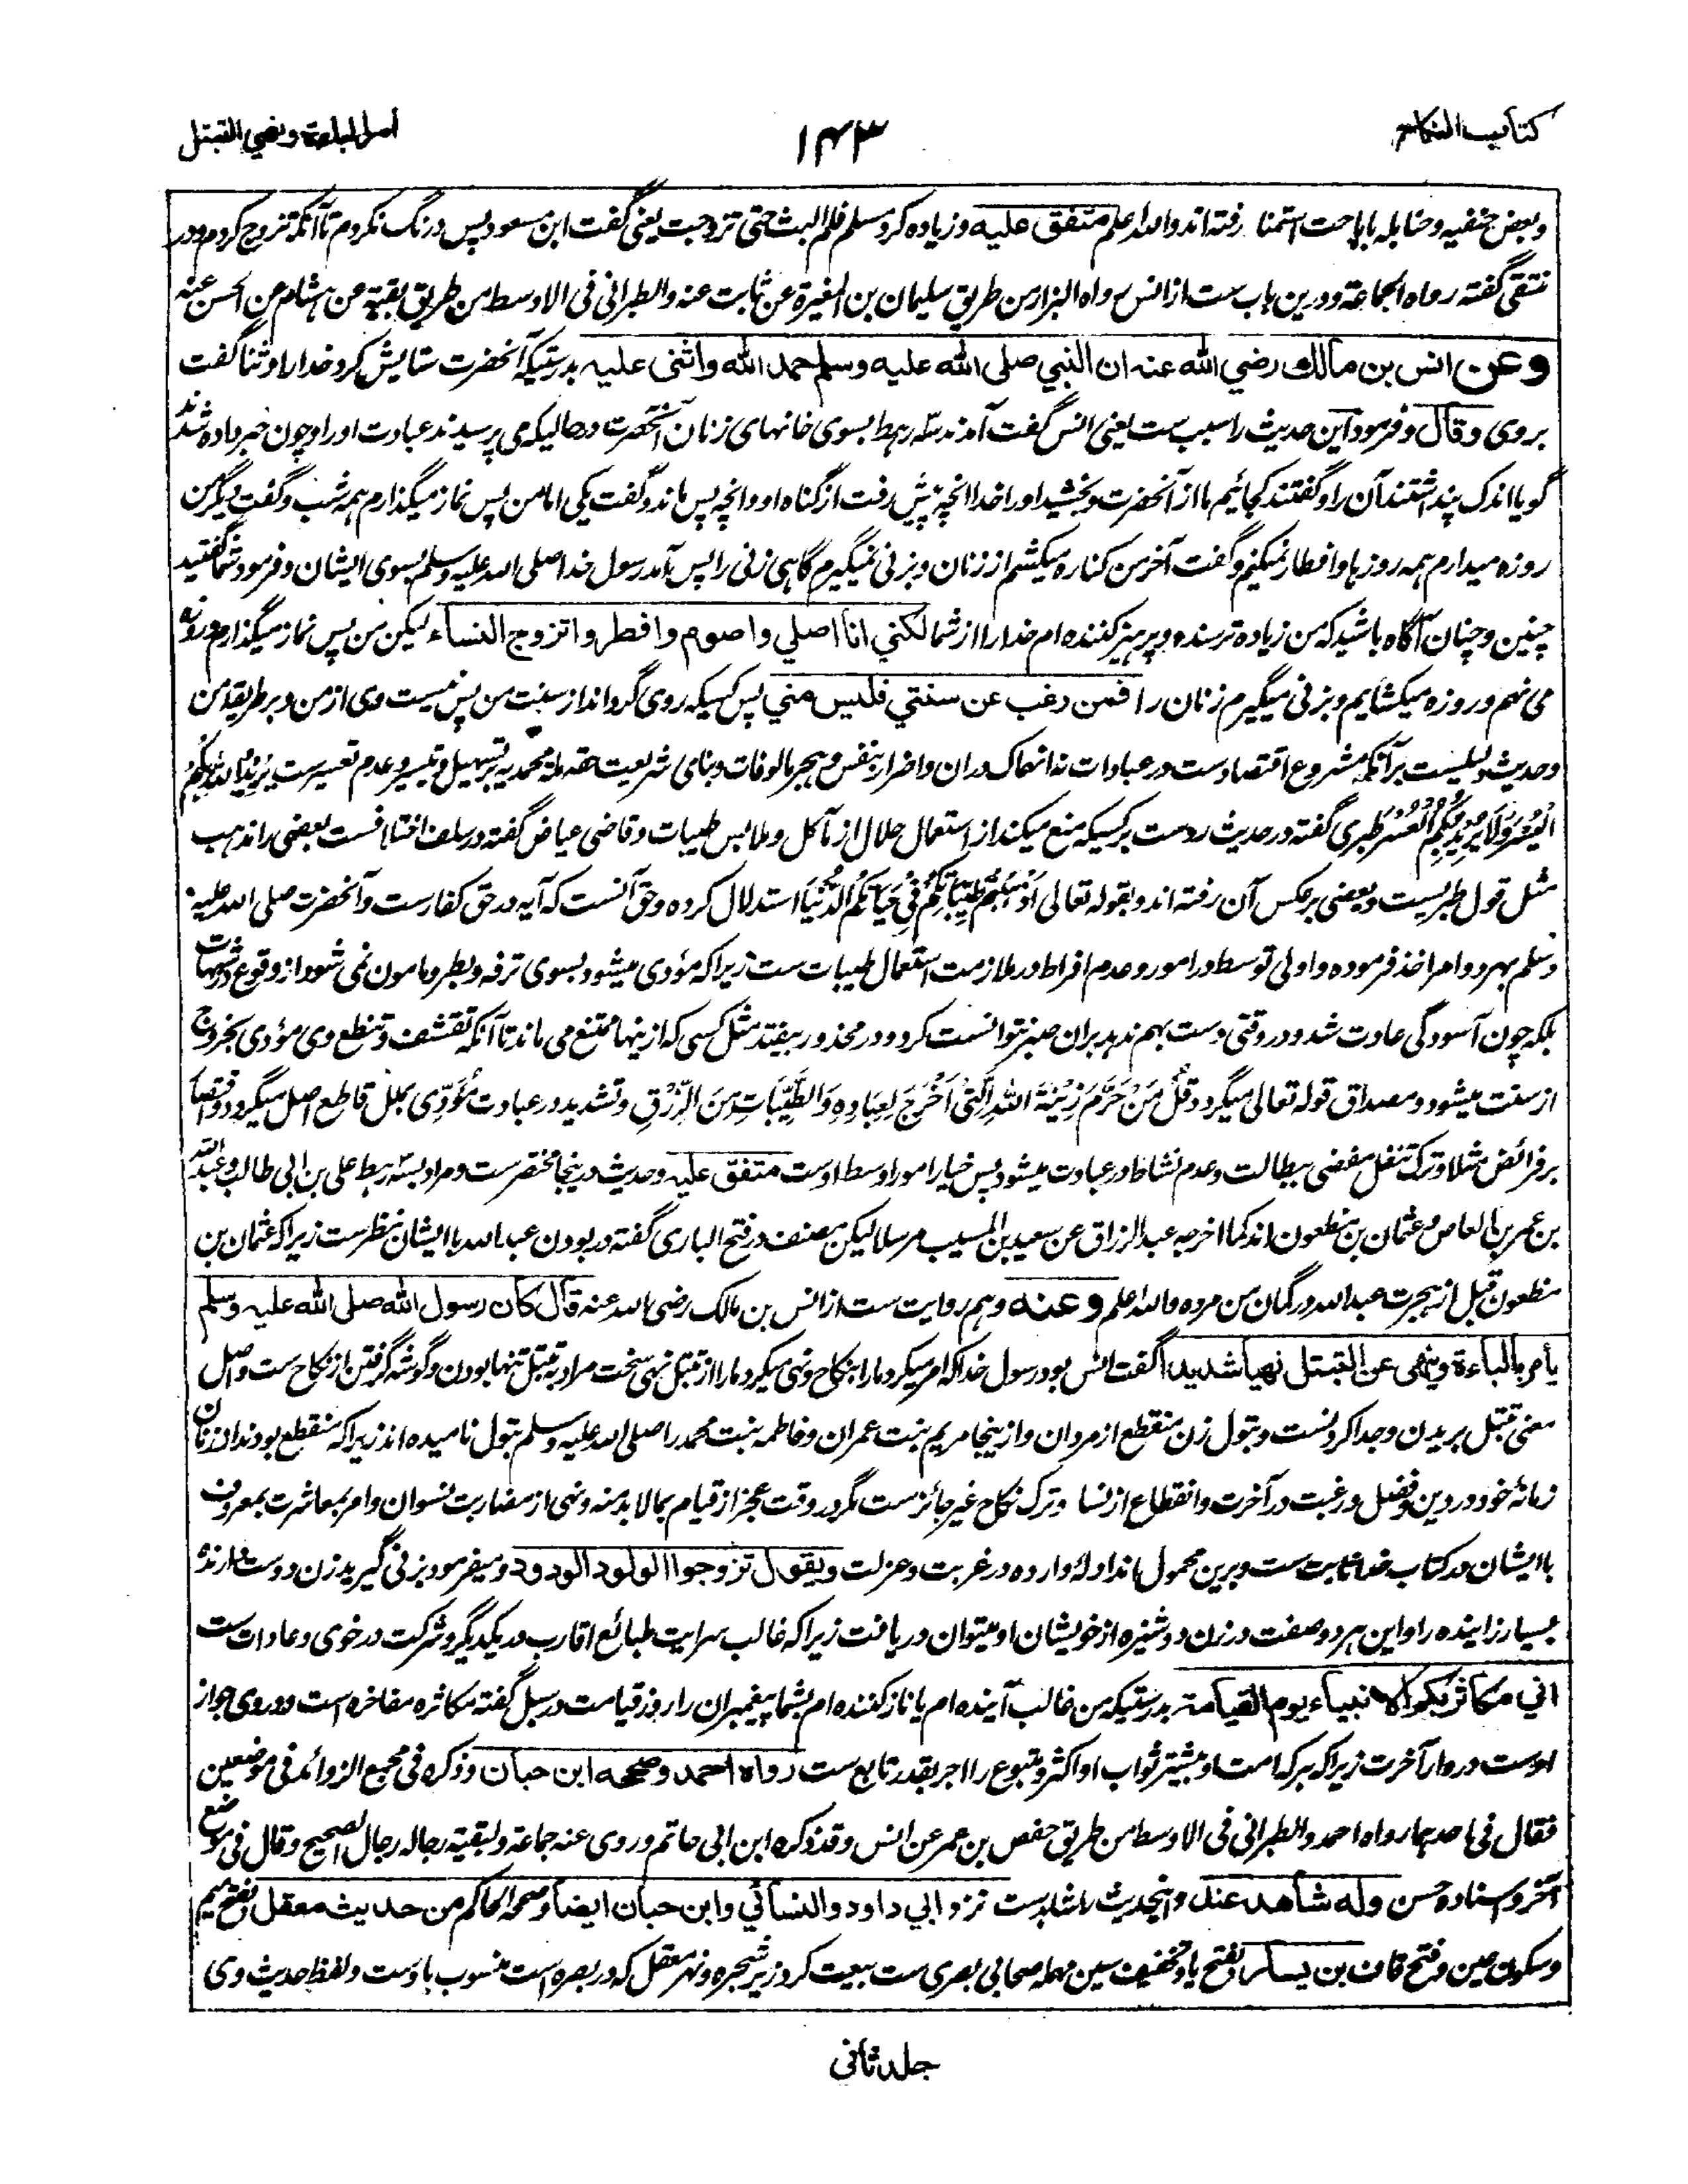 كتاب النكاح
۱۴۳
امر الباءة ونهي التبتل
وبعض حنفیه وحنابله باباحت استمنا رفته اند والله اعلم متفق عليه وزیاده کرد مسلم فلم البث حتی تزوجت یعنی گفت ابن مسعود پس درنگ نکردم تا آنکه تزوج کردم ودر
منتقی گفته رواه الجماعة ودرین باب ست از انس رواه البزار من طریق سلیمان بن المغیرة عن ثابت عنه والطبرانی فی الاوسط من طریق بقیة عن هشام عن الحسن عنه
وعن انس بن مالك رضي الله عنه ان النبي صلى الله عليه وسلم حمد الله واثنى عليه بدرستیکه آنحضرت ستایش کرد خدا را وثنا گفت
بروی وقال وفرمود این حدیث را سبب ست یعنی انس گفت آمدند سه رهط بسوی خانهای زنان آنحضرت در حالیکه می پرسیدند عبادت او را وچون خبر داده شدند
گویا اندک پنداشتند آن را وگفتند کجائیم ما از آنحضرت وبخشید او را خدا آنچه پیش رفت از گناه او وآنچه پس ماند وگفت یکی اما من پس نماز میگذارم همه شب وگفت دیگر من
روزه میدارم همه روزها وافطار نمیکنم وگفت آخر من کناره میکشم از زنان وبزنی نمیگیرم گاهی زنی را پس آمد رسول خدا صلی الله علیه وسلم بسوی ایشان وفرمود شما گفتید
چنین وچنان آگاه باشید که من زیاده ترسنده وپرهیز کننده ام خدا را از شما لكني انا اصلي واصوم وافطر واتزوج النساء لیکن من پس نماز میگذارم وروزه
می نهم وروزه میکشایم وبزنی میگیرم زنان را فمن رغب عن سنتي فليس مني پس کسیکه روی گرداند از سنت من پس نیست وی از من وبر طریقه من
وحدیث دلیلست بر آنکه مشروع اقتصادست در عبادات نه انهماک دران واضرار بنفس وهجر مالوفات وبنای شریعت حقه محمدیه بر تسهیل وتیسیر وعدم تعسیرست یُرِیدُ اللهُ بِکُمُ
الْیُسْرَ وَلَا یُرِیدُ بِکُمُ الْعُسْرَ طبری گفته در حدیث ردست بر کسیکه منع میکند از استعمال حلال از مآکل وملابس طیبات وقاضی عیاض گفته در سلف اختلافست بعضی را مذهب
مثل قول طبریست وبعضی بر عکس آن رفته اند وبقوله تعالی اَذْهَبْتُمْ طَیِّبَاتِکُمْ فِیْ حَیَاتِکُمُ الدُّنْیَا استدلال کرده وحق آنست که آیه در حق کفارست وآنحضرت صلی الله علیه
وسلم بهر دو امر اخذ فرموده واولی توسط در امور وعدم افراط در ملازمت استعمال طیبات ست زیرا که مؤدی میشود بسوی ترفه وبطر ومامون نمی شود از وقوع در شبهات
بلکه چون آسودگی عادت شد ودر وقتی دست بهم ندهد بران صبر نتوانست کرد ودر محذور بیفتد مثل کسی که ازینها ممتنع می ماند تا آنکه تقشف وتنطع وی مؤدی بخروج
از سنت میشود ومصداق قوله تعالی میگردد قُلْ مَنْ حَرَّمَ زِیْنَةَ اللهِ الَّتِیْ اَخْرَجَ لِعِبَادِهٖ وَالطَّیِّبَاتِ مِنَ الرِّزْقِ وتشدید در عبادت مُؤَدِّی بملل قاطع اصل میگردد واقتصار
بر فرائض مثلا وترک تنفل مفضی ببطالت وعدم نشاط در عبادت میشود پس خیار امور اوسط اوست متفق علیه وحدیث درینجا مختصرست ومراد بسه رهط علی بن ابی طالب وعبدالله
بن عمرو بن العاص وعثمان بن مظعون اند کما اخرجه عبدالرزاق عن سعید بن المسیب مرسلا لیکن مصنف در فتح الباری گفته در بودن عبدالله با ایشان نظرست زیرا که عثمان بن
مظعون قبل از هجرت عبدالله در گمان من مرده والله اعلم وعنه وهم روایت ست از انس بن مالک رضی الله عنه قال كان رسول الله صلى الله عليه وسلم
يأمر بالباءة وينهى عن التبتل نهيا شديدا گفت انس بود رسول خدا که امر میکرد ما را بنکاح ونهی میکرد ما را از تبتل نهی سخت مراد به تبتل تنها بودن وگوشه گرفتن از نکاح ست واصل
معنی تبتل بریدن وجدا کردنست وبتول زن منقطع از مردان وازینجا مریم بنت عمران وفاطمه بنت محمد را صلی الله علیه وسلم بتول نامیده اند زیرا که منقطع بودند از زنان
زمانهٔ خود در دین وفضل ورغبت در آخرت وانقطاع از نسا وترک نکاح غیر جائزست مگر در وقت عجز از قیام بمالابد منه ونهی از مضاربت نسوان وامر بمعاشرت بمعروف
با ایشان در کتاب خدا ثابت ست وبرین محمول اند ادلهٔ وارده در غربت وعزلت ويقول تزوجوا الولود الودود ومیفرمود بزنی گیرید زن دوست دارنده
بسیار زاینده را واین هر دو صفت در زن دوشیزه از خویشان او میتوان دریافت زیرا که غالب سرایت طبائع اقارب در یکدیگر وشرکت در خوی وعادات ست
اني مكاثر بكم الانبياء يوم القيامة بدرستیکه من غالب آینده ام یا ناز کننده ام بشما پیغمبران را روز قیامت در سبل گفته مکاثره مفاخره است ودر وی جواز
اوست در دار آخرت زیرا که هر که امت او بیشتر ثواب او اکثر ومتبوع را اجر بقدر تابع ست رواه احمد وصححه ابن حبان وذکره فی مجمع الزوائد فی موضعین
فقال فی احدهما رواه احمد والطبرانی فی الاوسط من طریق حفص بن عمر عن انس وقد ذکره ابن ابی حاتم وروی عنه جماعة وبقیة رجاله رجال الصحیح وقال فی موضع
آخر واسناده حسن وله شاهد عند واین حدیث را شاهدست نزد ابي داود والنسائي وابن حبان ایضا وصححه الحاکم من حديث معقل بفتح میم
وسکون عین وفتح قاف بن يسار بفتح یا وتخفیف سین مهمله صحابی بصری ست بیعت کرد زیر شجره ونهر معقل که در بصره است منسوب باوست ولفظ حدیث وی
جلد ثانی